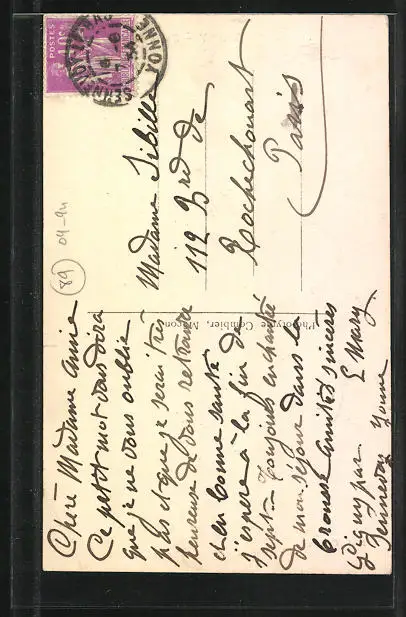 Chère Madame Annie
Ce petit mot vous dira
que je ne vous oublie
pas et que je serai très
heureuse de vous retrouver
et en bonne santé
j'espère à la fin de
sept. Toujours enchantée
de mon séjour dans la
brousse amitiés sincères
L Mary
Ligny par
Yonne
Phototypie Combier, Macon
Madame Sibille
112 Bd de
Rochechouart
Paris
POSTES
YONNE
89
04-94